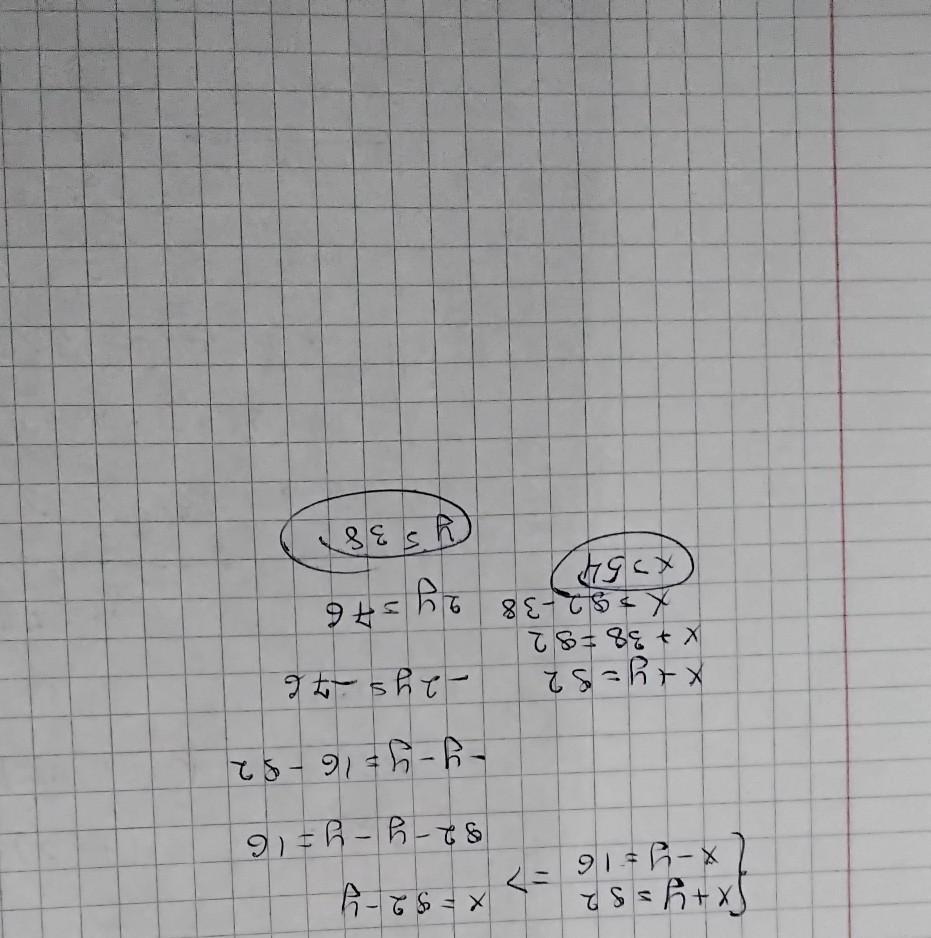 {x+y=92
x-y=16
=>
x=92-y
92-y-y=16
-y-y=16-92
-2y=-76
2y=76
y=38
x+y=92
x+38=92
x=92-38
x=54